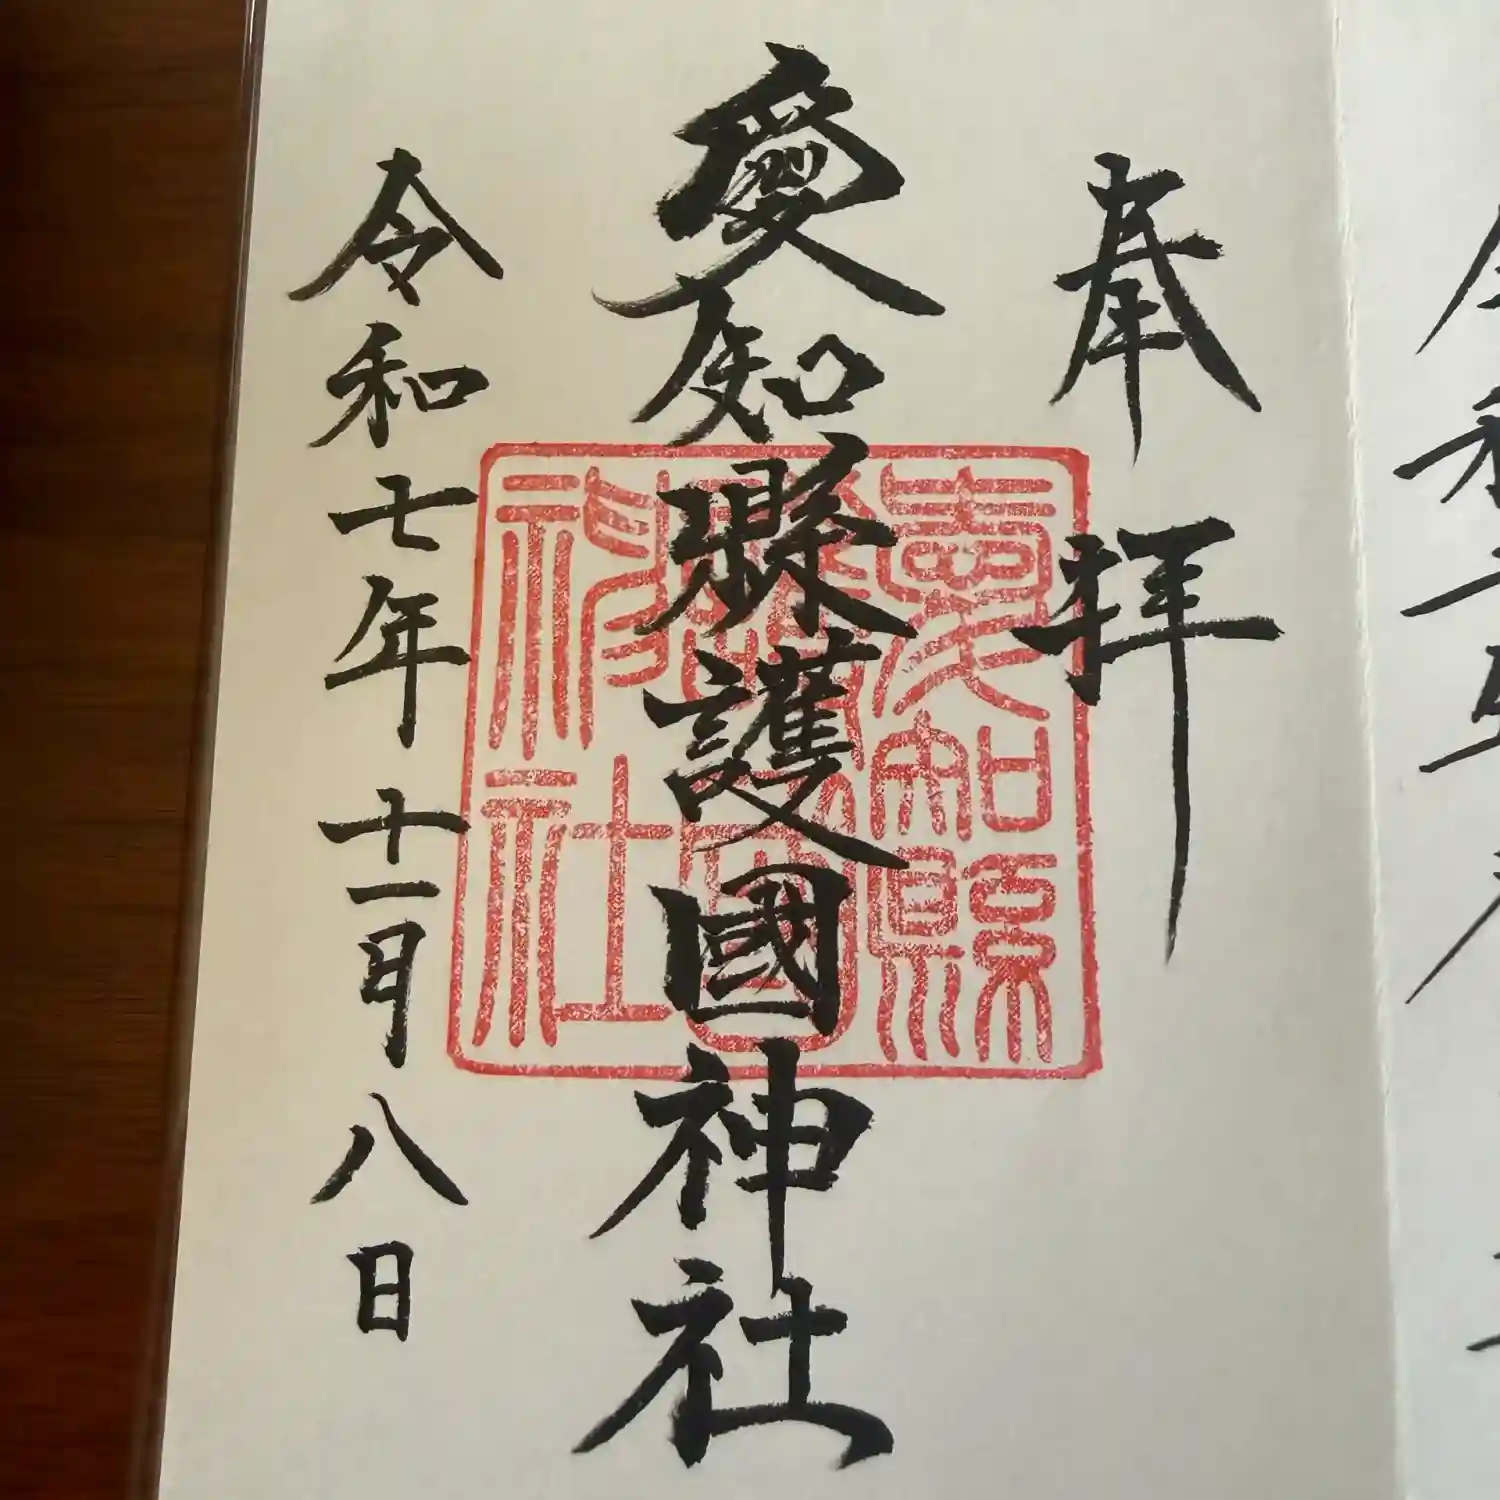 奉拝
愛知縣護國神社
令和七年十一月八日
愛知縣
神社